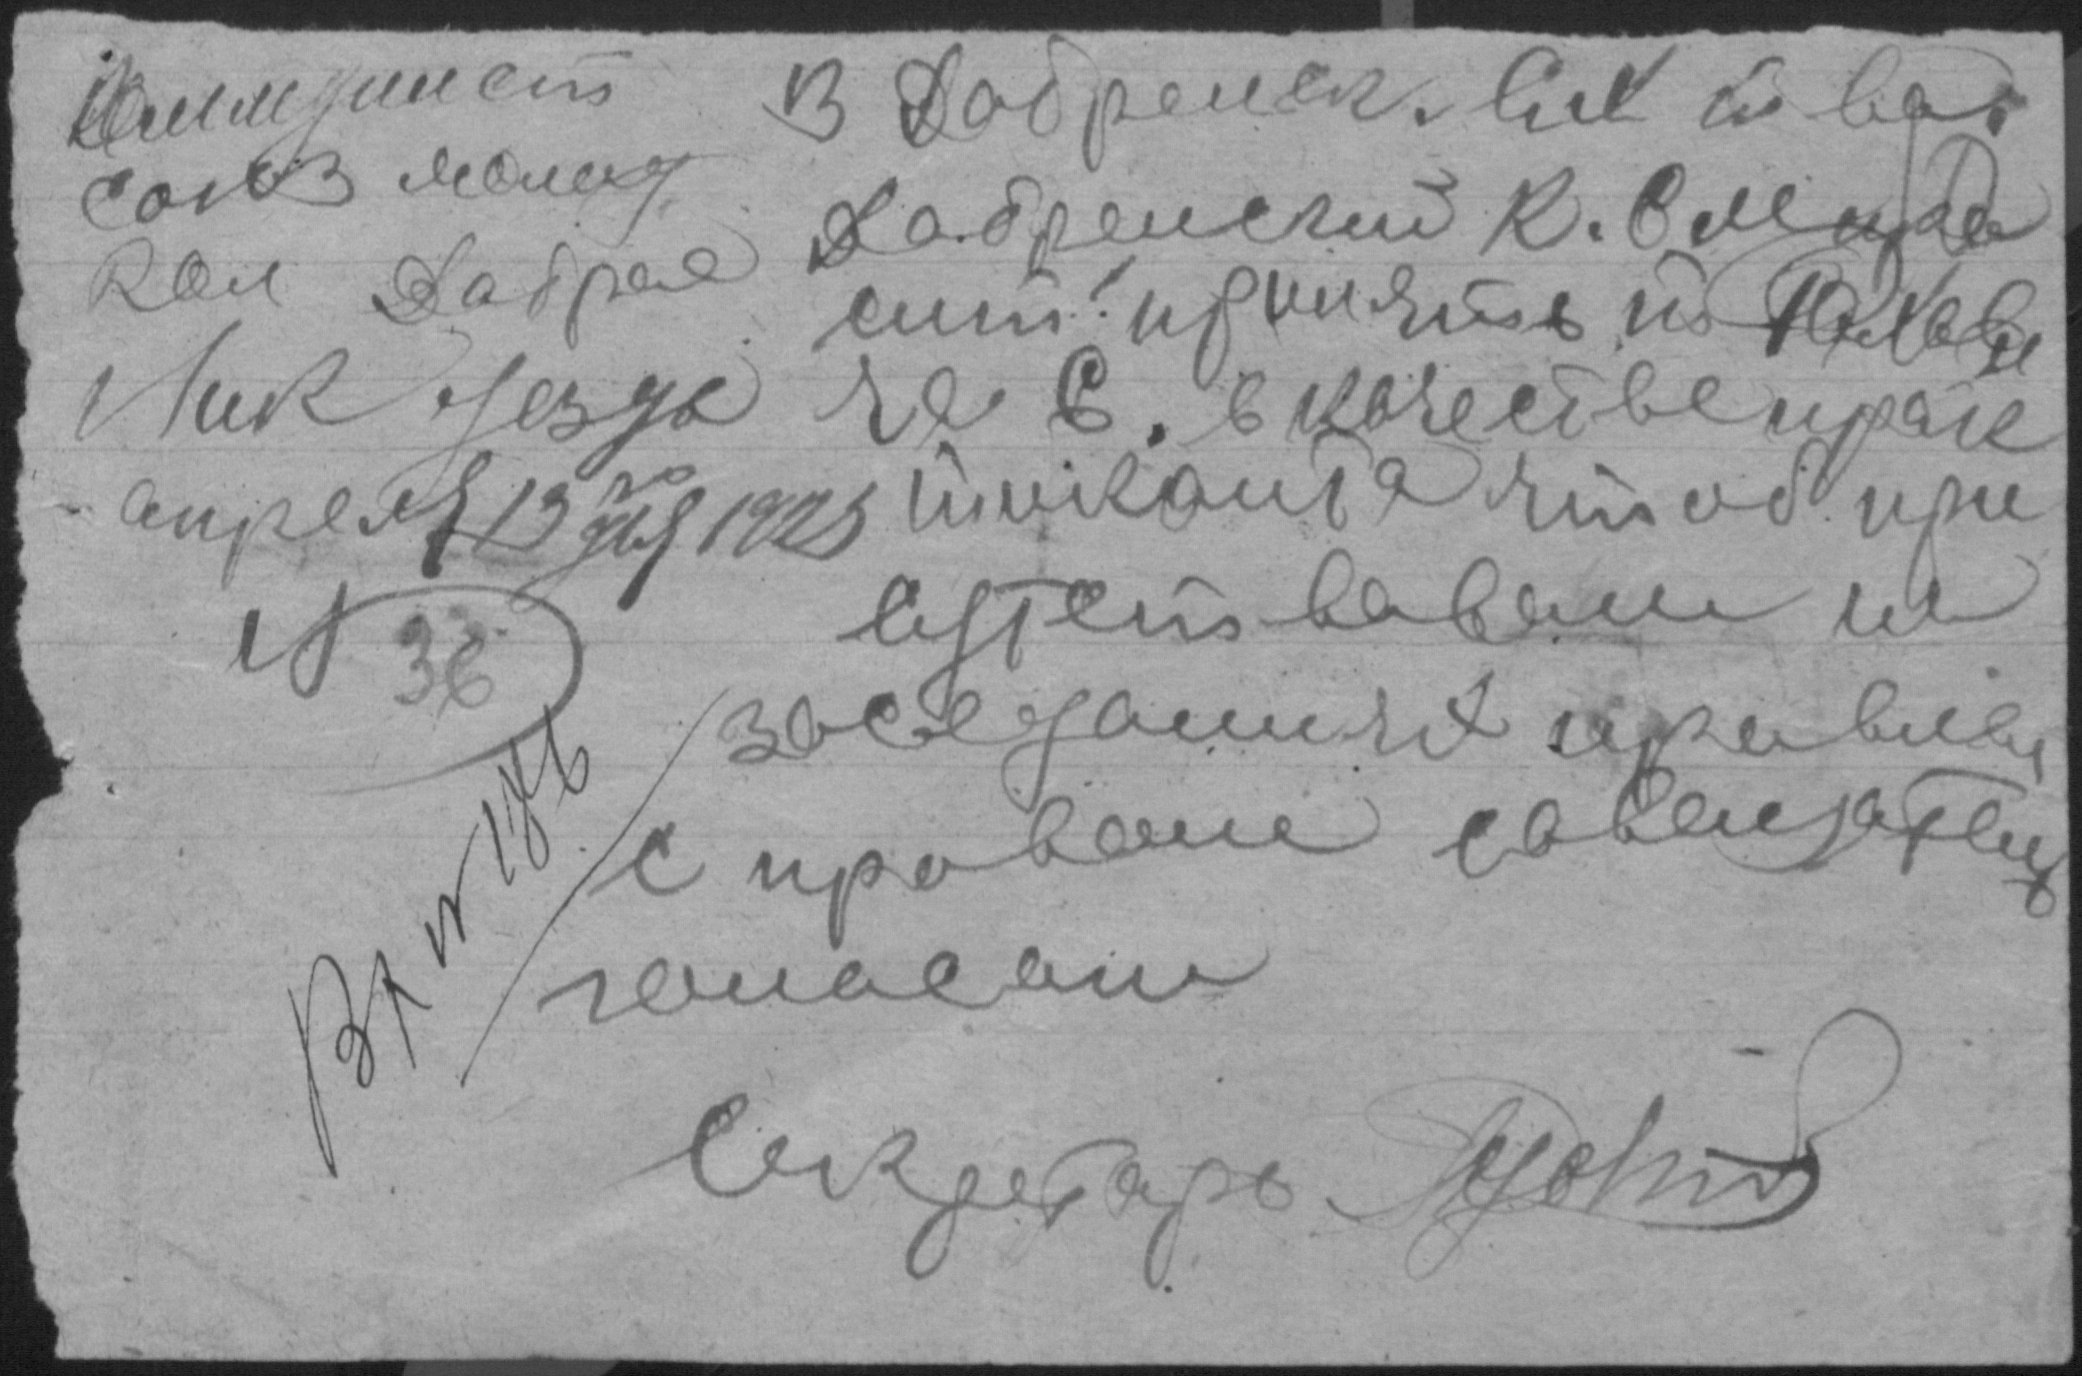 Коммунист
союз молод
Кол Доброе
Лик уезда
апреля 13 го дня 1925
N 36
В Добренск. Сик т ва
Добренский К. С М про
сит принять т
че С. в качестве прак
тиканта чтоб при
сутствовали на
заседаниях правлен
с правом совещател
голосом
Вх № 186
Секретарь